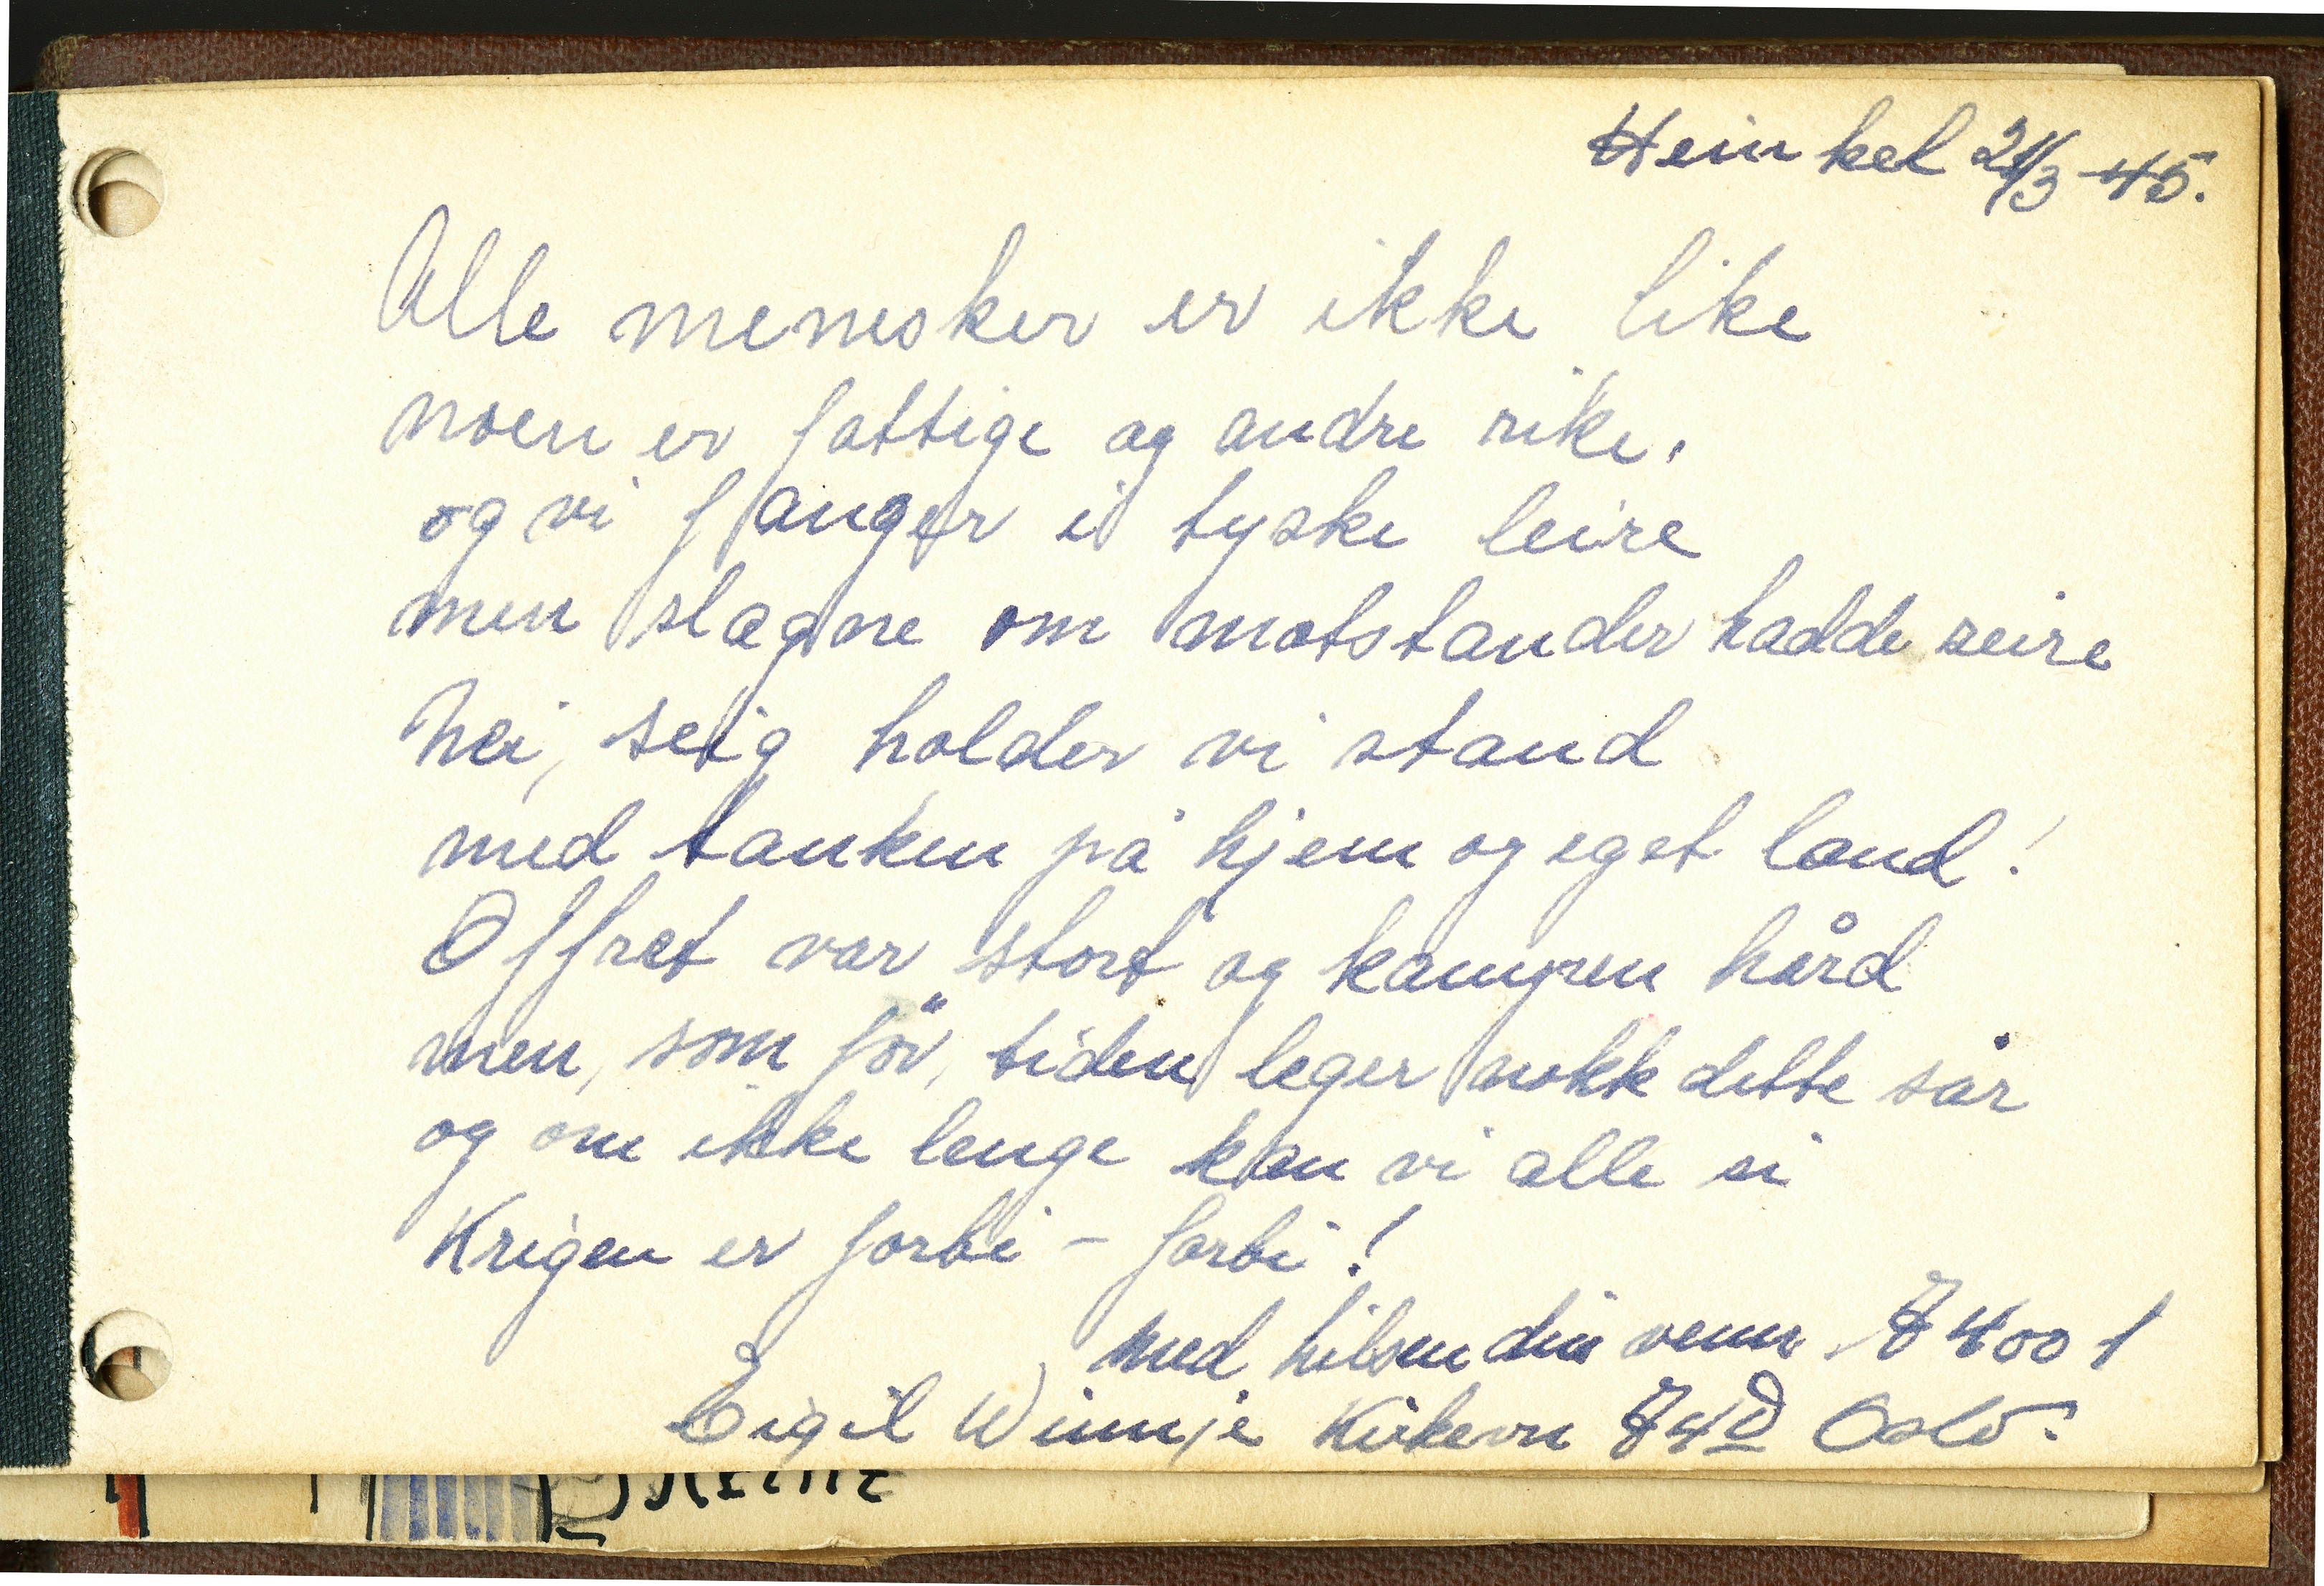 Heinkel 21/3-45.
Alle menesker er ikke like
noen er fattige og andre rike.
og vi fanger i tyske leire
men slagne om motstander hadde seire
Nei, seig holder vi stand
med tanken på hjem og eget land!
Offret var stort og kampen hård
men, som för, tiden leger nokk dette sår
og om ikke lenge kan vi alle si
Krigen er forbi - forbi!
med hilsen din venn. 74001
Eigil Winnje Kirkevn 74D Oslo.